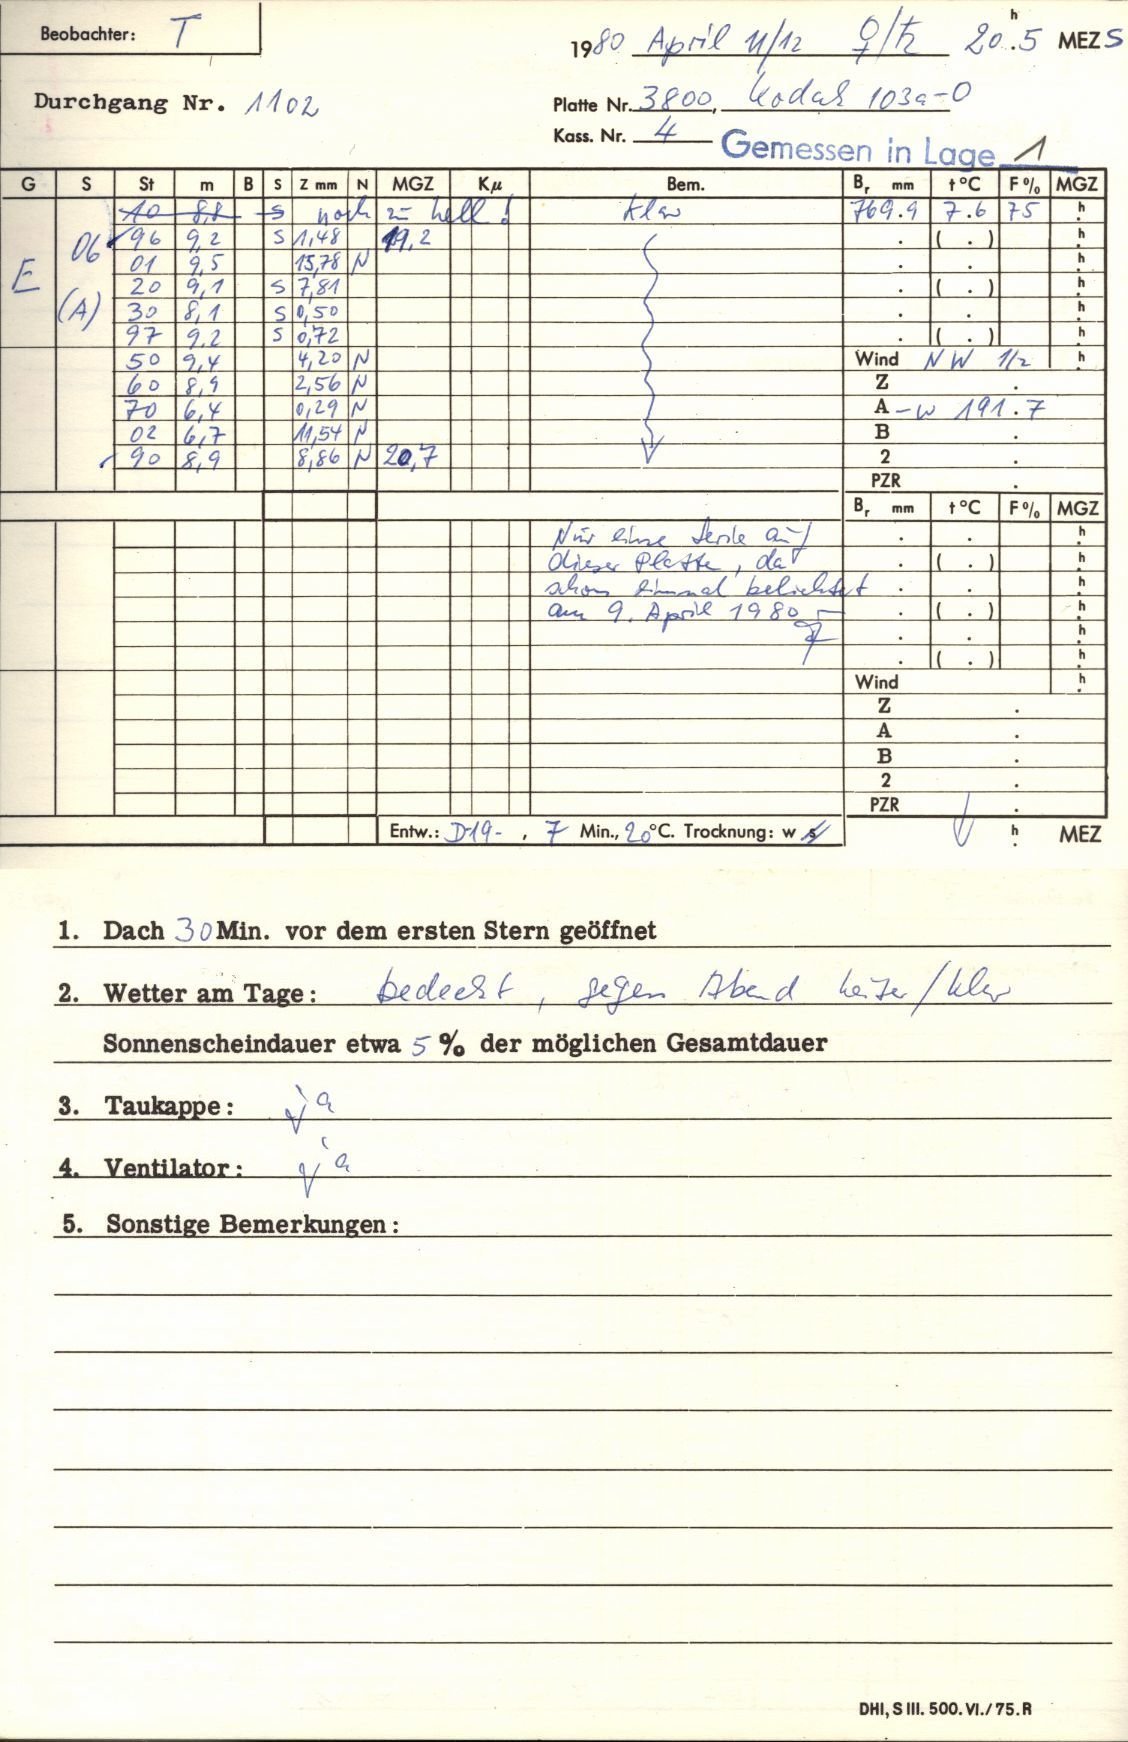 Beobachter: T
1980 April 11/12 ♀/♄ 20ʰ.5 MEZ S
Durchgang Nr. 1102
Platte Nr. 3800, Kodak 103a-O
Kass. Nr. 4
Gemessen in Lage 1
G S St m B S Z mm N MGZ Kμ Bem. Br mm t °C F % MGZ
10 8,8 S noch zu hell! klar 769.9 7.6 75 h
E 06 (A)
96 9,2 S 1,48 19,2 . ( . ) h
01 9,5 15,78 N . . h
20 9,1 S 7,81 . ( . ) h
30 8,1 S 0,50 . . h
97 9.2 S 0,72 . ( . ) h
50 9,4 4,20 N Wind NW 1/2 h
60 8,9 2,56 N Z .
70 6,4 0,29 N A -w 191.7
02 6,7 11,54 N B .
90 8,9 8,86 N 20,7 2 .
PZR .
Br mm t °C F % MGZ
Nur eine Serie auf . . h
dieser Platte, da . ( . ) h
schon einmal belichtet . . h
am 9. April 1980 . ( . ) h
. . h
. ( . ) h
Wind h
Z .
A .
B .
2 .
PZR .
Entw.: D19- , 7 Min., 20°C. Trocknung: w s h . MEZ
1. Dach 30 Min. vor dem ersten Stern geöffnet
2. Wetter am Tage: bedeckt, gegen Abend heiter/klar
Sonnenscheindauer etwa 5 % der möglichen Gesamtdauer
3. Taukappe: ja
4. Ventilator: ja
5. Sonstige Bemerkungen:
DHI, S III. 500. VI./75. R